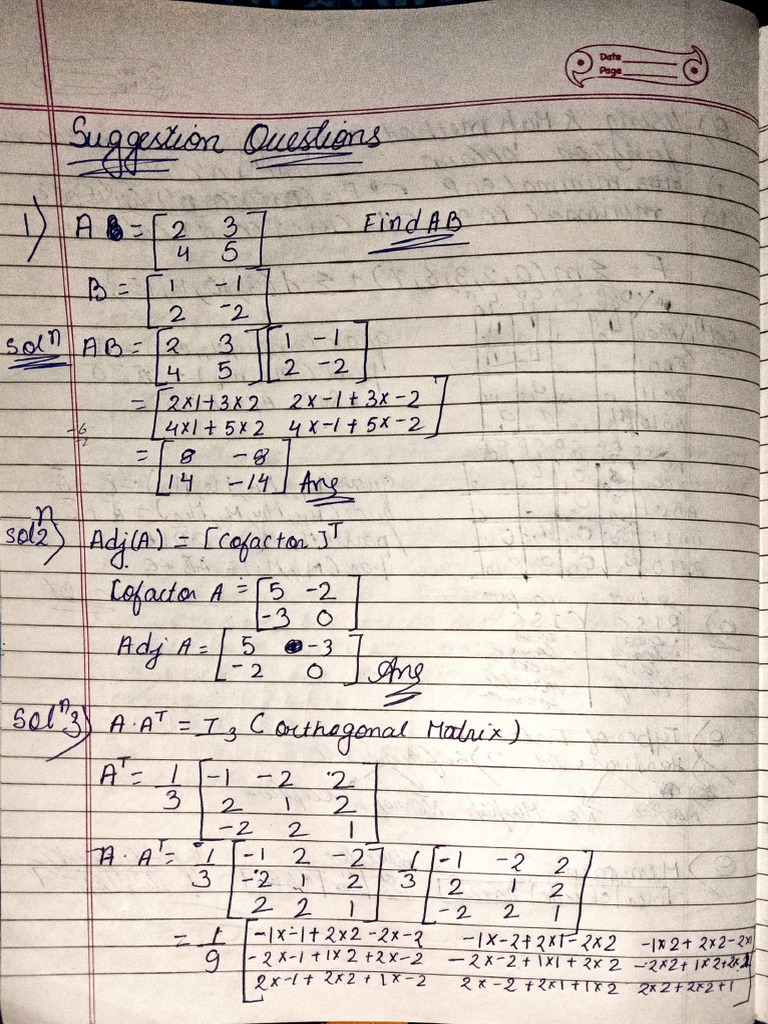 Date
Page
Suggestion Questions
1) A = [2 3   Find AB
4 5]
B = [1 -1
2 -2]
Solⁿ AB = [2 3 [1 -1
4 5] 2 -2]
= [2x1+3x2 2x-1+3x-2
4x1+5x2 4x-1+5x-2]
= [8 -8
14 -14] Ans
Solⁿ2) Adj(A) = [Cofactor]ᵀ
Cofactor A = [5 -2
-3 0]
Adj A = [5 -3
-2 0] Ans
Solⁿ3) A·Aᵀ = I₃ (orthogonal Matrix)
Aᵀ = 1/3 [-1 -2 2
2 1 2
-2 2 1]
A·Aᵀ = 1/3 [-1 2 -2 1/3 [-1 -2 2
-2 1 2 2 1 2
2 2 1] -2 2 1]
= 1/9 [-1x-1+2x2-2x-2 -1x-2+2x1-2x2 -1x2+2x2-2x1
-2x-1+1x2+2x-2 -2x-2+1x1+2x2 -2x2+1x2+2x1
2x-1+2x2+1x-2 2x-2+2x1+1x2 2x2+2x2+1]